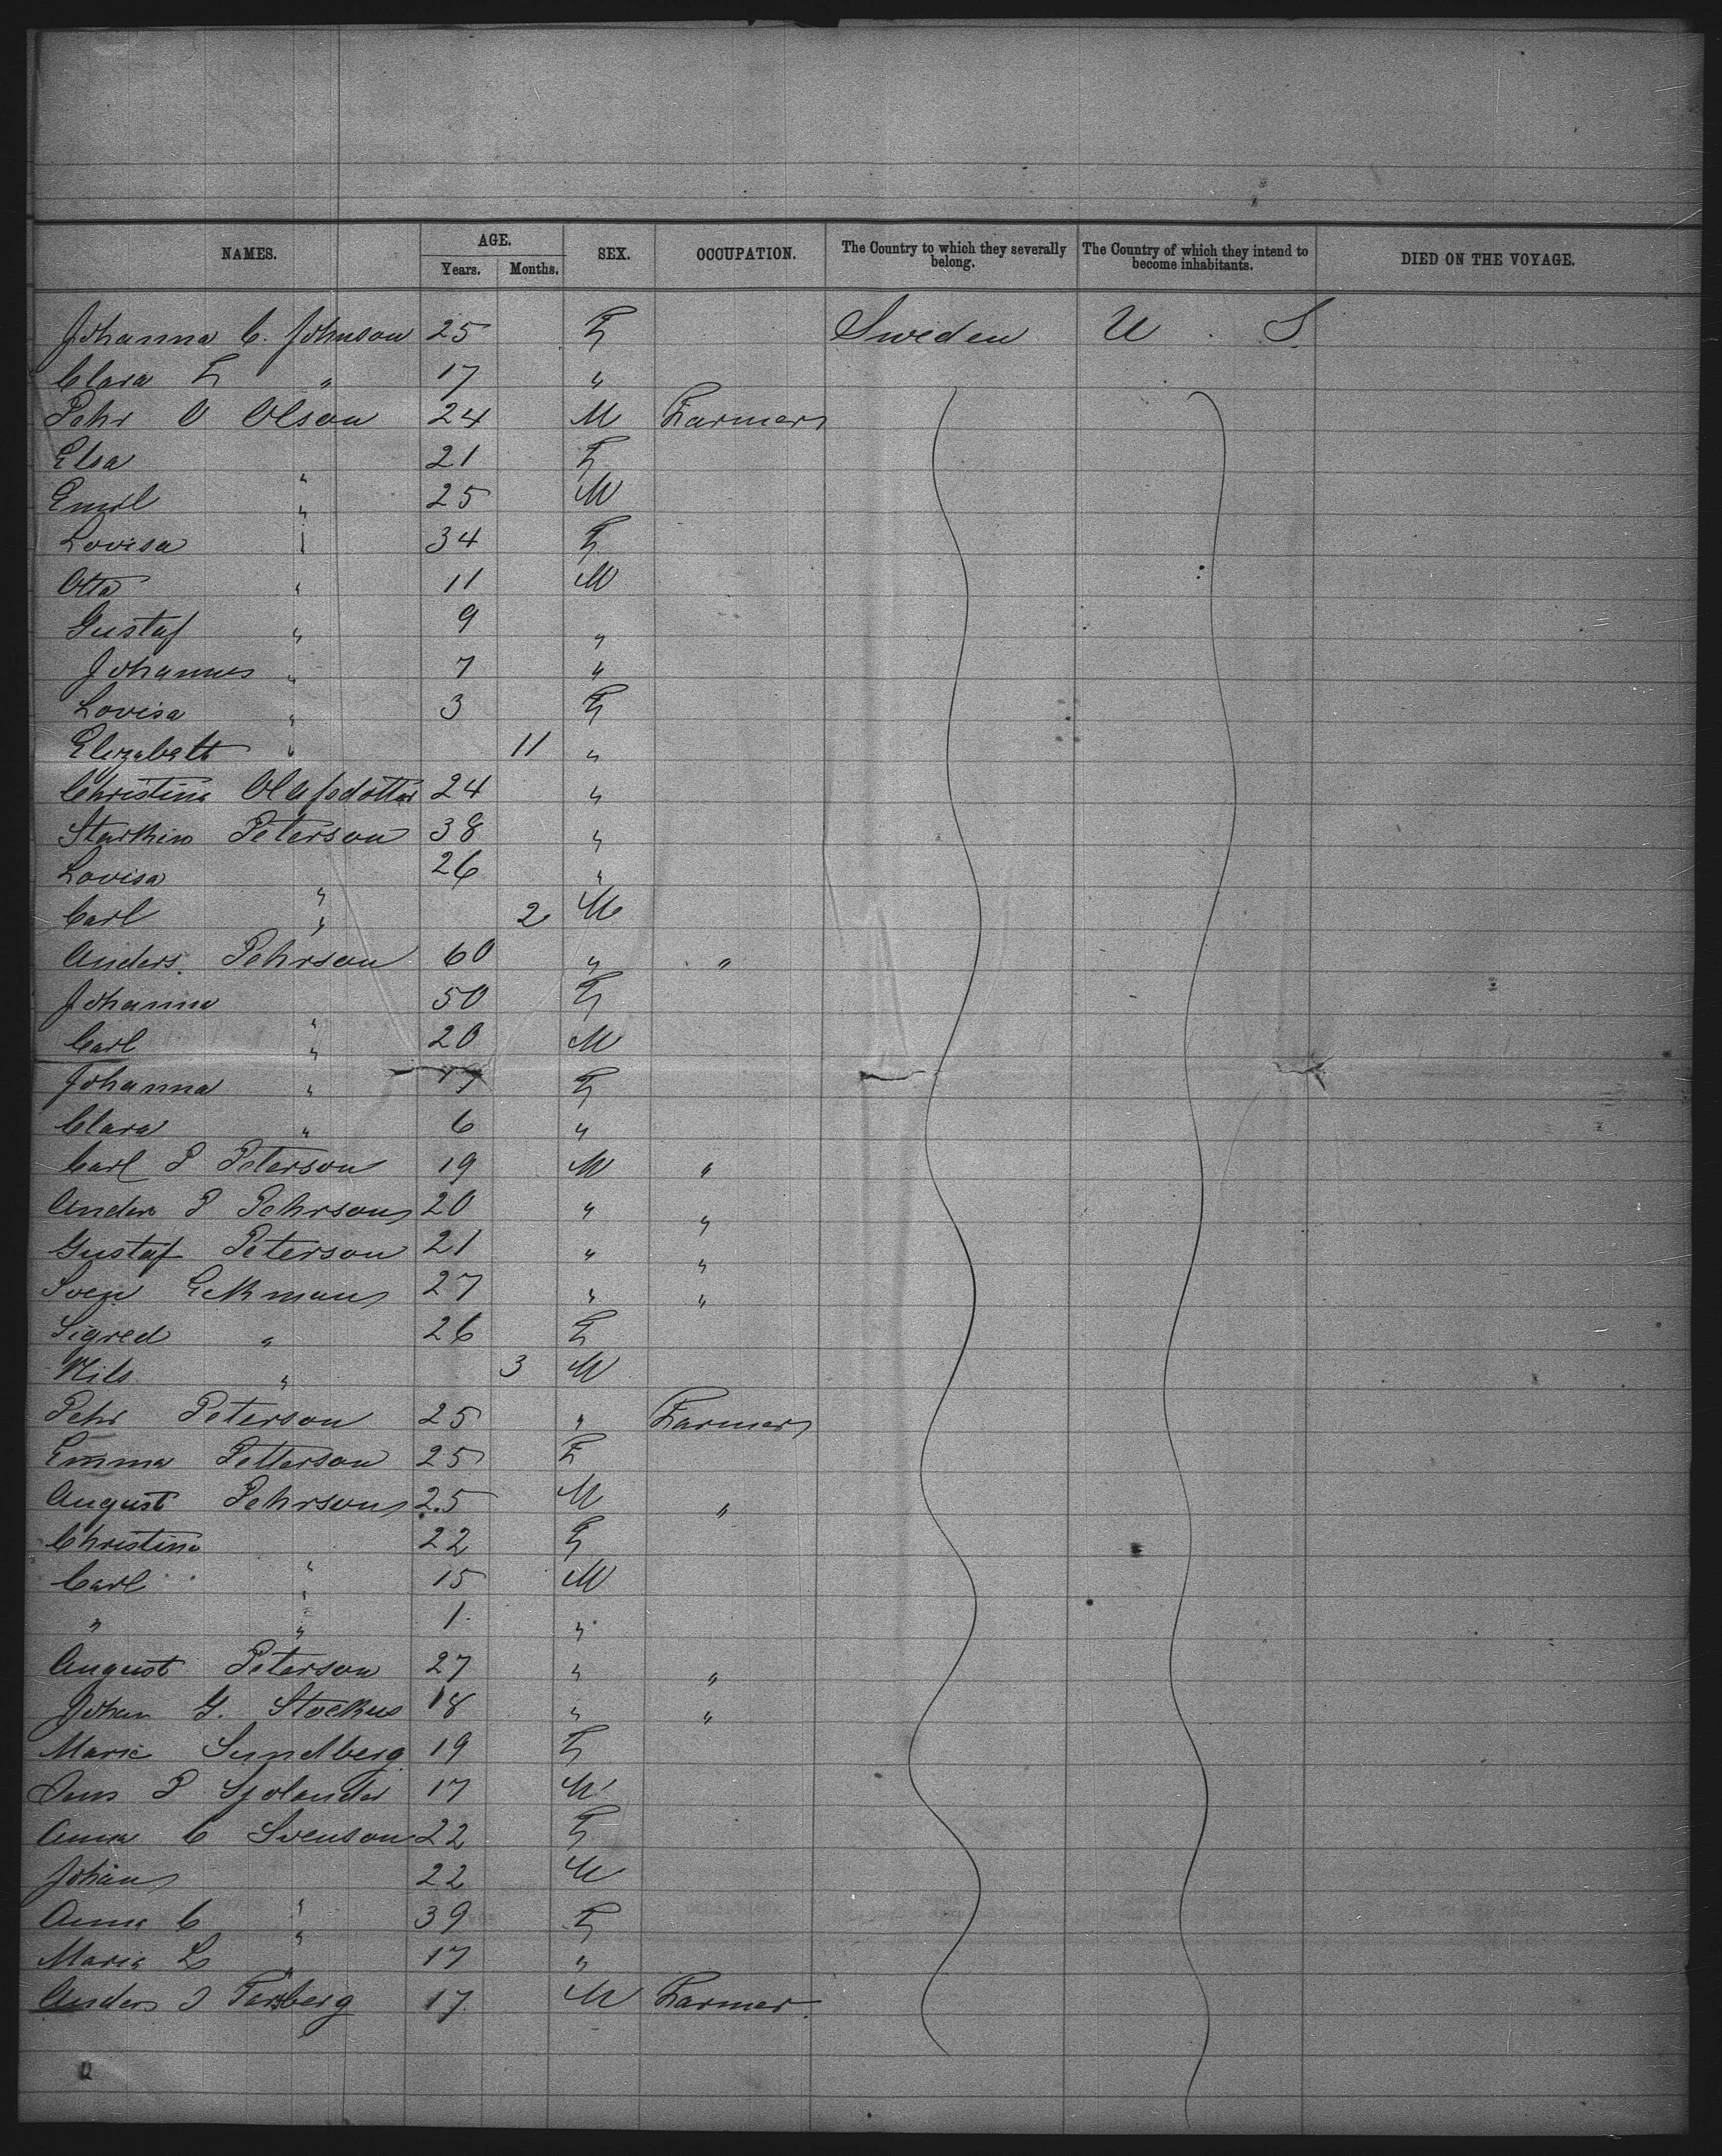 NAMES. AGE. SEX. OCCUPATION. The Country to which they severally belong. The Country of which they intend to become inhabitants. DIED ON THE VOYAGE.
Years. Months.
Johanna C. Johnson 25 F Sweden U. S
Clara F " 17 "
Pehr O Olson 24 M Farmer
Elsa " 21 F
Emil " 25 M
Lovisa " 34 F
Otto " 11 M
Gustaf " 9 "
Johannes " 7 "
Lovisa " 3 F
Elizabeth " 11 "
Christina Olafsdotter 24 "
Peterson 38 "
Lovisa " 26 "
Carl " 2 M
Anders Pehrson 60 " "
Johanna " 50 F
Carl " 20 M
Johanna " 17 F
Clara " 6 "
Carl P Peterson 19 M "
Anders P Pehrson 20 " "
Gustaf Peterson 21 " "
Sven Eckman 27 " "
Sigred " 26 F
Nils " 3 M
Pehr Peterson 25 " Farmer
Emma Petterson 25 F
August Pehrson 25 M "
Christina " 22 F
Carl " 15 M
" " 1 "
August Peterson 27 " "
Johan G. 18 " "
Maria Sundberg 19 F
Jons P Sjolander 17 M
Anna C Svenson 22 F
Johan " 22 M
Anna C " 39 F
Maria L " 17 "
Anders J 17 M Farmer